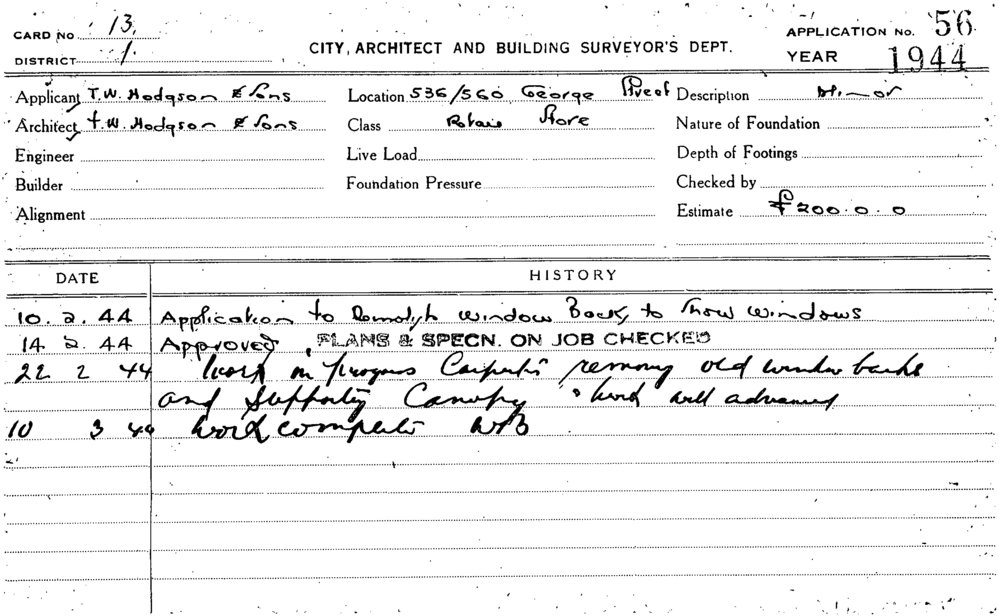 CARD No 13.
DISTRICT 1.
CITY, ARCHITECT AND BUILDING SURVEYOR'S DEPT.
APPLICATION No. 56
YEAR 1944
Applicant T.W. Hodgson & Sons Location 536/560 George Street Description Minor
Architect T.W. Hodgson & Sons Class Retail Store Nature of Foundation
Engineer Live Load Depth of Footings
Builder Foundation Pressure Checked by
Alignment Estimate £200.0.0
DATE HISTORY
10. 2. 44 Application to Demolish window Backs to Show windows
14 2. 44 Approved PLANS & SPECN. ON JOB CHECKED
22 2 44 Work in progress Carpenters removing old window backs
and supporting Canopy work well advanced
10 3 44 Work complete